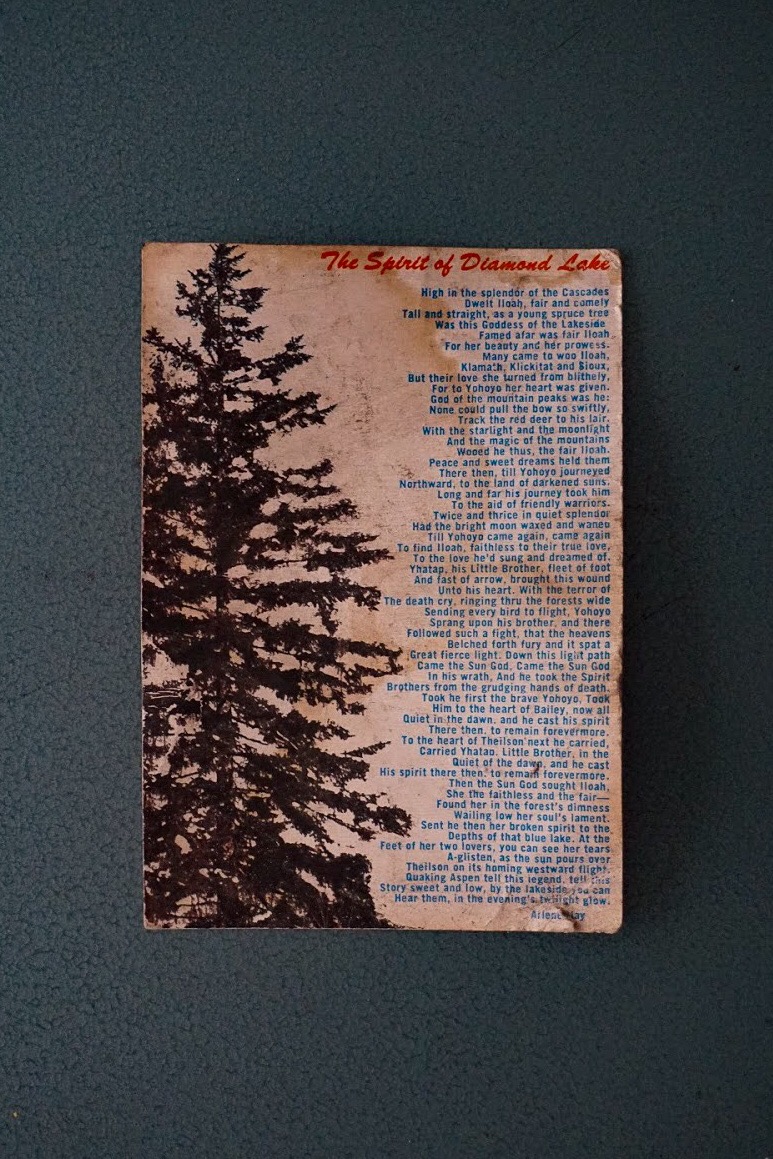 The Spirit of Diamond Lake
High in the splendor of the Cascades
Dwelt Iloah, fair and comely
Tall and straight, as a young spruce tree
Was this Goddess of the Lakeside
Famed afar was fair Iloah
For her beauty and her prowess.
Many came to woo Iloah,
Klamath, Klickitat and Sioux,
But their love she turned from blithely,
For to Yohoyo her heart was given.
God of the mountain peaks was he:
None could pull the bow so swiftly,
Track the red deer to his lair.
With the starlight and the moonlight
And the magic of the mountains
Wooed he thus, the fair Iloah.
Peace and sweet dreams held them
There then, till Yohoyo journeyed
Northward, to the land of darkened suns.
Long and far his journey took him
To the aid of friendly warriors.
Twice and thrice in quiet splendor
Had the bright moon waxed and waned
Till Yohoyo came again, came again
To find Iloah, faithless to their true love,
To the love he'd sung and dreamed of.
Yhatap, his Little Brother, fleet of foot
And fast of arrow, brought this wound
Unto his heart. With the terror of
The death cry, ringing thru the forests wide
Sending every bird to flight, Yohoyo
Sprang upon his brother, and there
Followed such a fight, that the heavens
Belched forth fury and it spat a
Great fierce light. Down this light path
Came the Sun God, Came the Sun God
In his wrath, And he took the Spirit
Brothers from the grudging hands of death.
Took he first the brave Yohoyo, Took
Him to the heart of Bailey, now all
Quiet in the dawn, and he cast his spirit
There then, to remain forevermore.
To the heart of Theilson next he carried,
Carried Yhatap, Little Brother, in the
Quiet of the dawn, and he cast
His spirit there then, to remain forevermore.
Then the Sun God sought Iloah,
She the faithless and the fair—
Found her in the forest's dimness
Wailing low her soul's lament.
Sent he then her broken spirit to the
Depths of that blue lake. At the
Feet of her two lovers, you can see her tears
A-glisten, as the sun pours over
Theilson on its homing westward flight.
Quaking Aspen tell this legend, tell this
Story sweet and low, by the lakeside you can
Hear them, in the evening's twilight glow.